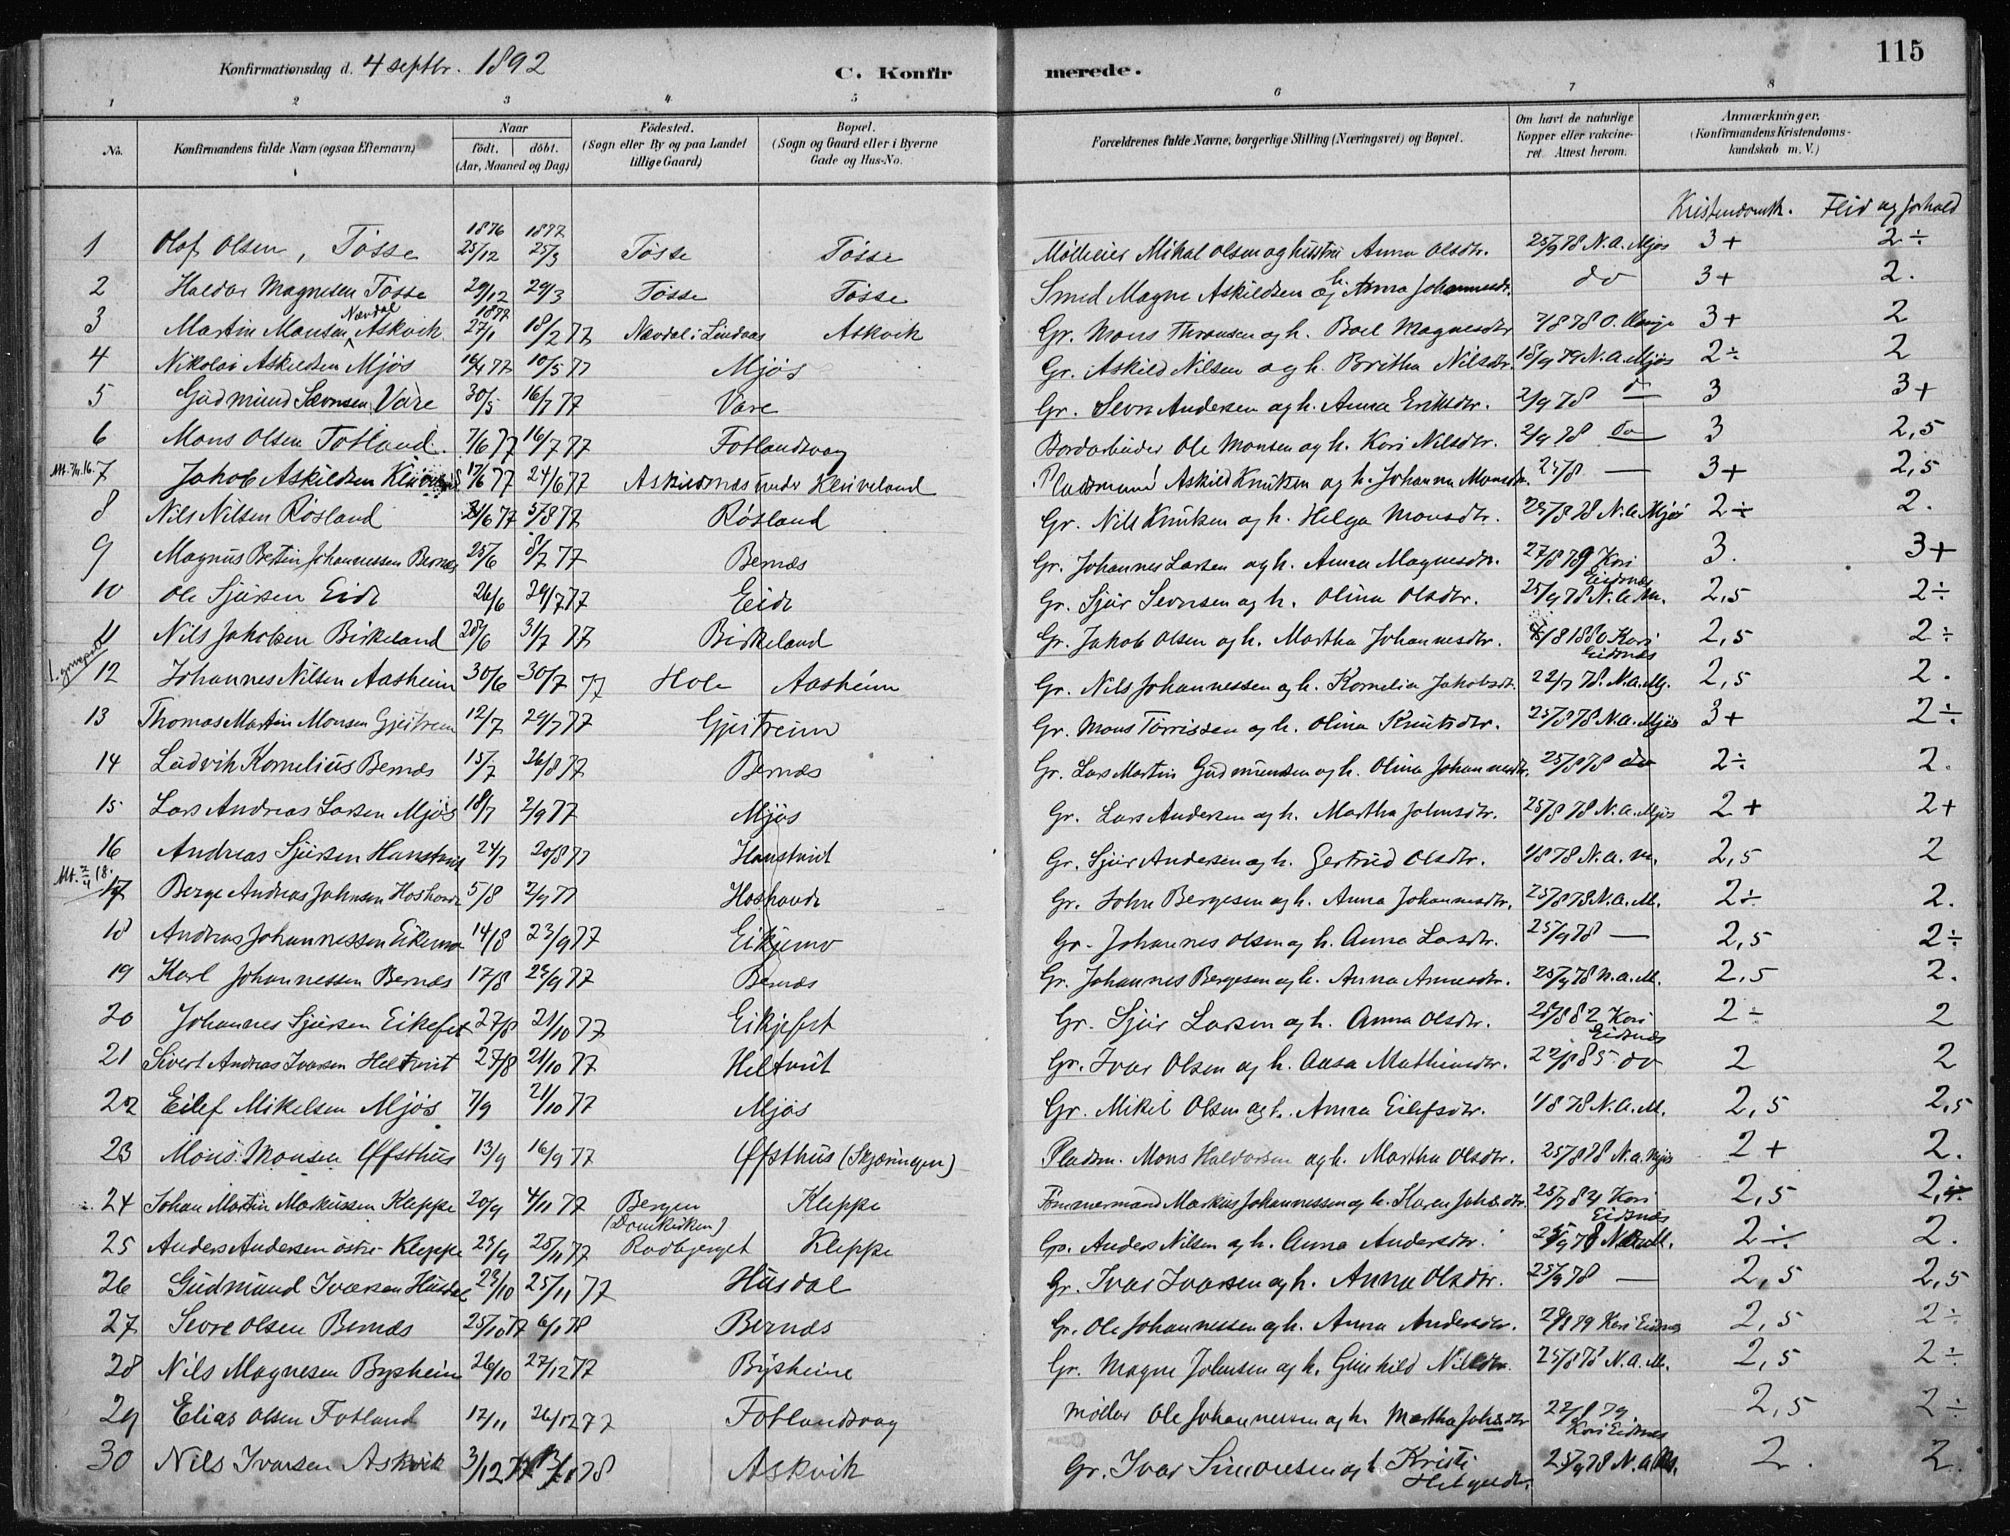 115
Konfirmationsdag d. 4 septbr. 1892
C. Konfirmerede.
1 2 3 4 5 6 7 8
No. Konfirmandens fulde Navn (ogsaa Efternavn) Naar født. døbt. (Aar, Maaned og Dag) Fødested. (Sogn eller By og paa Landet tillige Gaard) Bopæl. (Sogn og Gaard eller i Byerne Gade og Hus-No. Forældrenes fulde Navne, borgerlige Stilling (Næringsvei) og Bopæl. Om havt de naturlige Kopper eller vakcineret. Attest herom. Anmærkninger, (Konfirmandens Kristendomskundskab m. V.)
Kristendomsk. Flid og forhold
1 Olaf Olsen, Tøsse 1876 25/12 1877 25/3 Tøsse Tøsse Mikal Olsen og hustru Anna Olsdtr. 25/9 78 N. A. Mjøs 3+ 2÷
2 Haldor Magnesen Tøsse 29/12 29/3 Tøsse Tøsse Smed Magne Askildsen og h. Anna Johannesdr. do 3+ 2.
3 Martin Monsen Nævdal Askvik 1877 27/1 18/2 77 Nævdal i Lindaas Askvik Gr. Mons Thronsen og h. Boel Magnesdtr 3+ 2
4 Nikolai Askildsen Mjøs 16/4 77 10/5 77 Mjøs Gr. Askild Nilsen og h. Britha Nilsdtr. 18/9 79 N. A. Mjøs 2÷ 2
5 Gudmund Sævrsen Vare 30/5 16/7 77 Vare Gr. Sevrs Andersen og h. Anna Eriksdtr. 2/9 78 do 3 3+
6 Mons Olsen Fotland. 7/6 77 16/7 77 Fotlandsvag Ole Monsen og h. Kari Nilsdtr. 2/9 78 do 3 2,5
7 Jakob Askildsen 17/6 77 24/6 77 Askildnæs under Kleiveland Pladsmand Askild Knutsen og h. Johanna Monsdtr. 3+ 2,5
8 Nils Nilsen Røsland 77 5/8 77 Røsland Gr. Nils Knutsen og h. Helga Monsdtr. 25/8 78 N. A. Mjøs 2÷ 2.
9 Magnus Johannessen Bernæs 25/6 8/7 77 Bernæs Gr. Johannes Larsen og h. Anna Magnesdtr. 27/8 79 Kari Eidsnæs 3. 3+
10 Ole Sjursen Eide 26/6 29/7 77 Eide Gr. Sjur Sevrsen og h. Olina Olsdtr. 25/9 78 N. A. M. 2,5 2÷
11 Nils Jakobsen Birkeland 28/6 31/7 77 Birkeland Gr. Jakob Olsen og h. Martha Johannesdtr. 1880 Kari Eidsnæs 2,5 2÷
12 Johannes Nilsen Aasheim 30/6 30/7 77 Hole Aasheim Gr. Nils Johannessen og h. Kornelia Jakobsdt. 22/7 78. N. A. Mj. 2,5 2.
13 Thomas Martin Monsen Gjeitreim 12/7 29/7 77 Gjeitreim Gr. Mons Torrissen og h. Olina Knutsdtr. 25/8 78 N. A. Mjøs 3+ 2÷
14 Ludvik Kornelius Bernæs 15/7 26/8 77 Bernæs Gr. Lars Martin Gudmunsen og h. Olina Johannesdtr. 25/8 78 do 2÷ 2.
15 Lars Andreas Larsen Mjøs 18/7 2/9 77 Mjøs Gr. Lars Andersen og h. Martha Johnsdtr. 25/8 78 N. A. Mjøs 2+ 2+
16 Andreas Sjursen Hanstveit 24/7 20/8 77 Hanstveit Gr. Sjur Andersen og h. Gertrud Olsdtr. 1/8 78 N. A. M. 2,5 2
17 Berge Andreas Johnsen Hoshovde 5/8 2/9 77 Hoshovde Gr. John Bergesen og h. Anna Johannesdtr. 25/8 78 N. A. M. 2÷ 2.
18 Andreas Johannessen Eikemo 14/8 23/9 77 Eikjemo Gr. Johannes Olsen og h. Anna Larsdtr. 25/9 78 — 2,5 2÷
19 Karl Johannessen Bernæs 17/8 23/9 77 Bernæs Gr. Johannes Bergesen og h. Anna Arnesdtr. 25/9 78 N. A. M. 2,5 2.
20 Johannes Sjursen Eikefet 27/8 21/10 77 Eikjefet Gr. Sjur Larsen og h. Anna Olsdtr. 25/8 82 Kari Eidsnæs 2÷ 2
21 Sivert Andreas Ivarsen Heltveit 27/8 21/10 77 Heltveit Gr. Ivar Olsen og h. Aasa Mathiasdtr. 85 do 2 2
22 Eilef Mikelsen Mjøs 7/9 21/10 77 Mjøs Gr. Mikel Olsen og h. Anna Eilefsdtr. 1/8 78 N. A. M. 2,5 2,5
23 Mons Monsen Øfsthus 13/9 16/9 77 Øfsthus (Skjæringen) Pladsm. Mons Haldorsen og h. Martha Olsdtr. 25/8 78 N. A. Mjøs 2+ 2.
24 Johan Martin Markussen Kleppe 20/9 4/11 77 Bergen (Domkirken) Kleppe Tømmermand Markus Johannessen og h. Karen Joh.dtr. Kari Eidsnæs 2,5
25 Anders Andersen østre Kleppe 23/9 25/11 77 Rodbjerget Kleppe Gr. Anders Nilsen og h. Anna Andersdtr. 2÷ 2.
26 Gudmund Ivarsen Husdal 23/10 25/11 77 Husdal Gr. Ivar Ivarsen og h. Anna Olsdtr. 25/9 78 — 2,5 2,5
27 Sevre Olsen Bernæs 25/10 77 6/1 78 Bernæs Gr. Ole Johannessen og h. Anna Andersdtr. Kari Eidsnæs 2,5 2÷
28 Nils Magnesen Bysheim 26/10 27/12 77 Bysheim Gr. Magne Johnsen og h. Gunhild Nilsdtr. 25/8 78 N. A. M. 2,5 2÷
29 Elias Olsen Fotland 17/11 26/12 77 Fotlandsvag Møller Ole Johannessen og h. Martha Joh.dtr 27/8 79 Kari Eidsnæs 2,5 2÷
30 Nils Ivarsen Askvik 3/12 77 78 Askvik Gr. Ivar Simonsen og h. Kristi Helgesdtr. 25/9 78 N. A. M. 2. 2.